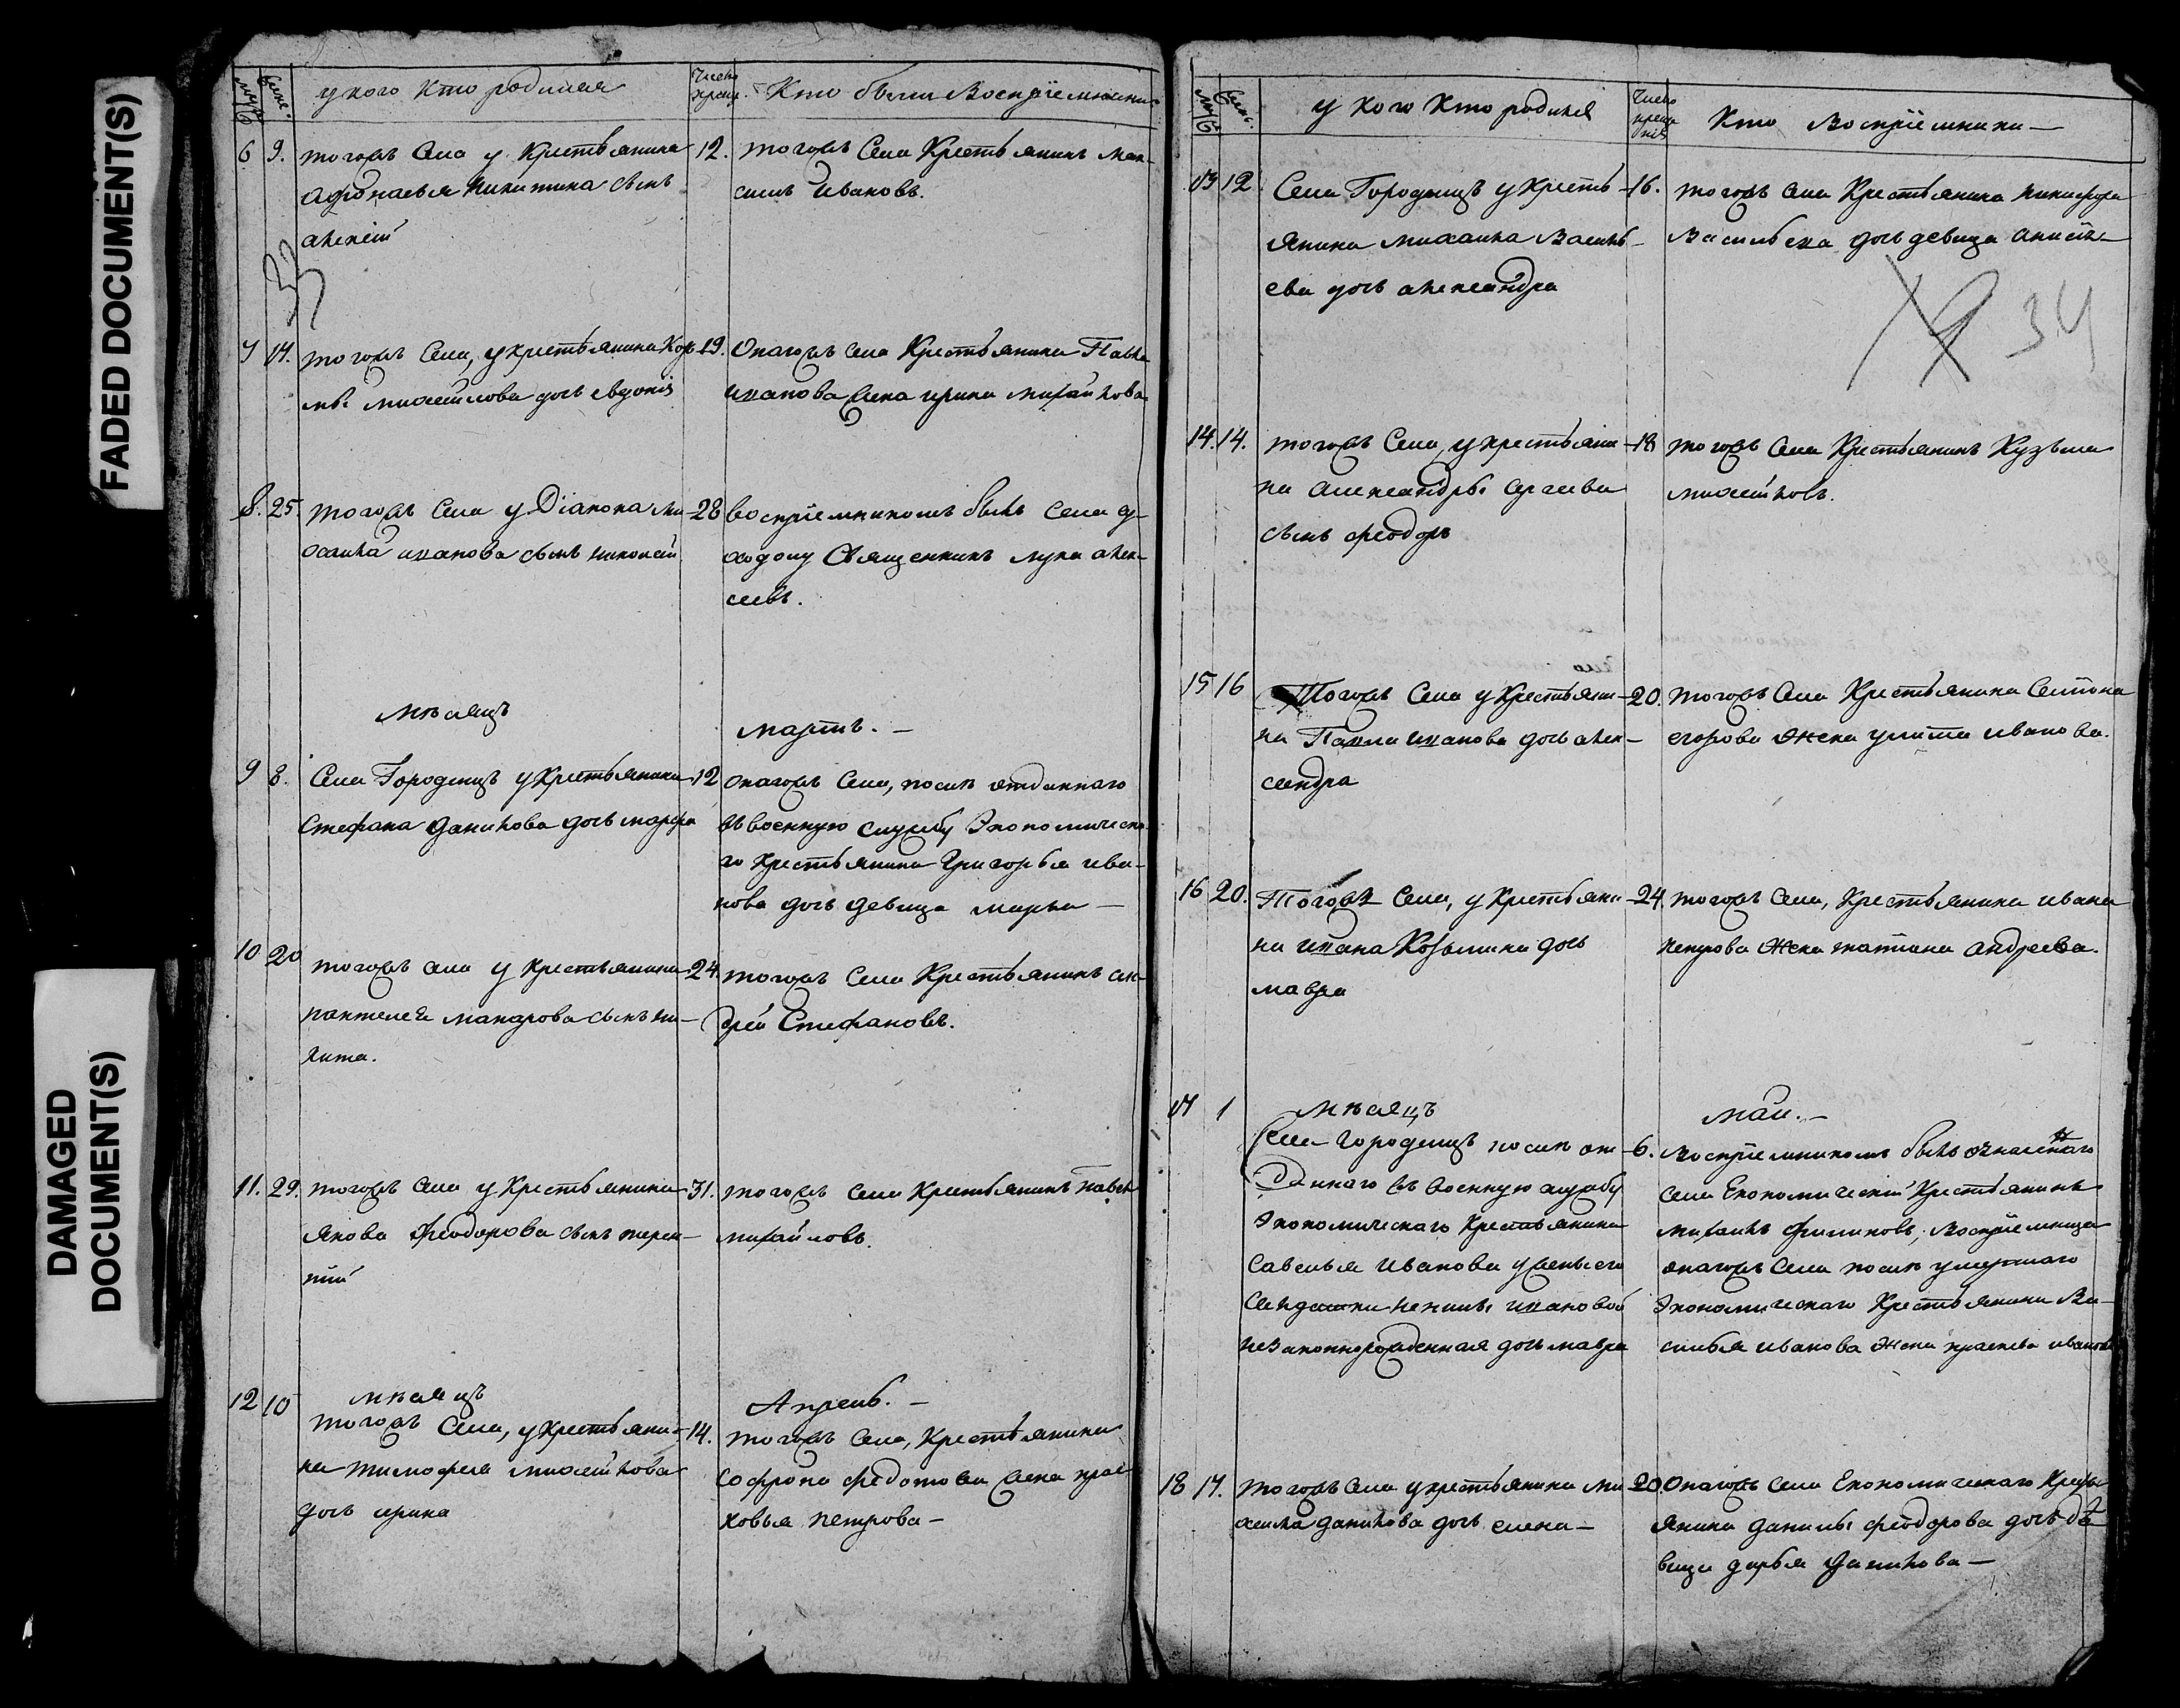 FADED DOCUMENT(S)
DAMAGED
DOCUMENT(S)
у кого кто родился
Число крещ.
Кто были Восприемники
6 9. тогожъ села у Крестьянина
Афонасья Никитина сынъ
алексѣй
12. тогожъ Села Крестьянинъ Мак-
симъ Ивановъ.
7 17. тогожъ Села, у крестьянина Кор-
нѣ михайлова дочь евдокія
19. Онагожъ села Крестьянина Павла
иванова жена ирина михайлова
8. 25. тогожъ Села у Діакона ми-
хаила иванова сынъ николай
28 восприемникомъ былъ села
Священникъ лука алек-
сеевъ.
мѣсяцъ
мартъ.
9 8. Села Городищъ у Крестьянина
Стефана данилова дочь марфа
12 онагожъ Села, послѣ отданнаго
въ военную службу Экономическа-
го крестьянина Григорья ива-
нова дочь девица марья
10 20 тогожъ села у крестьянина
пантелея макарова сынъ ни-
кита.
24. тогожъ Села Крестьянинъ ан-
дрей Стефановъ.
11. 29. тогожъ Села у Крестьянина
якова феодорова сынъ терен-
тий
31. тогожъ села Крестьянинъ Павелъ
михайловъ.
мѣсяцъ
Апрель.
12 10 тогожъ Села, у крестьяни-
на тимофея михайлова
дочь ирина
14. тогожъ Села, Крестьянина
софрона федотова жена прас-
ковья петрова
у кого кто родился
Число креще ния
Кто восприемники
13 12 Села Городищъ у кресть-
янина михаила Василь-
ева дочь александра
16. тогожъ села Крестьянина никифора
Васильева дочь девица
34
14. 14. тогожъ Села, у крестьяни-
на александры сергиева
сынъ феодоръ
18 тогожъ Села Крестьянинъ Кузьма
михайловъ.
15 16 Тогожъ Села у Крестьяни-
на Павла иванова дочь алек-
сандра
20. тогожъ Села Крестьянина Семиона
егорова жена улита иванова.
16 20. Тогожъ Села, у Крестьяни-
на ивана Козьмина дочь
мавра
24. тогожъ Села, Крестьянина ивана
петрова жена татиана андреева.
мѣсяцъ
маи.
17 1 Села городищъ послѣ от-
даннаго въ военную службу
Экономическаго Крестьянина
Савелья Иванова у жены его
солдатки ненилы ивановой
незаконнорожденная дочь мавра
6. восприемникомъ былъ означеннаго
села Економический Крестьянинъ
михаилъ филиповъ, восприемница
онагожъ Села послѣ умершаго
Экономическаго Крестьянина Ва-
силья иванова жена прасковья иванова
18 17. тогожъ Села у крестьянина ми-
хаила данилова дочь елена
20. Онагожъ села Економическаго Кресть-
янина данилы феодорова дочь дѣ-
вица дарья данилова